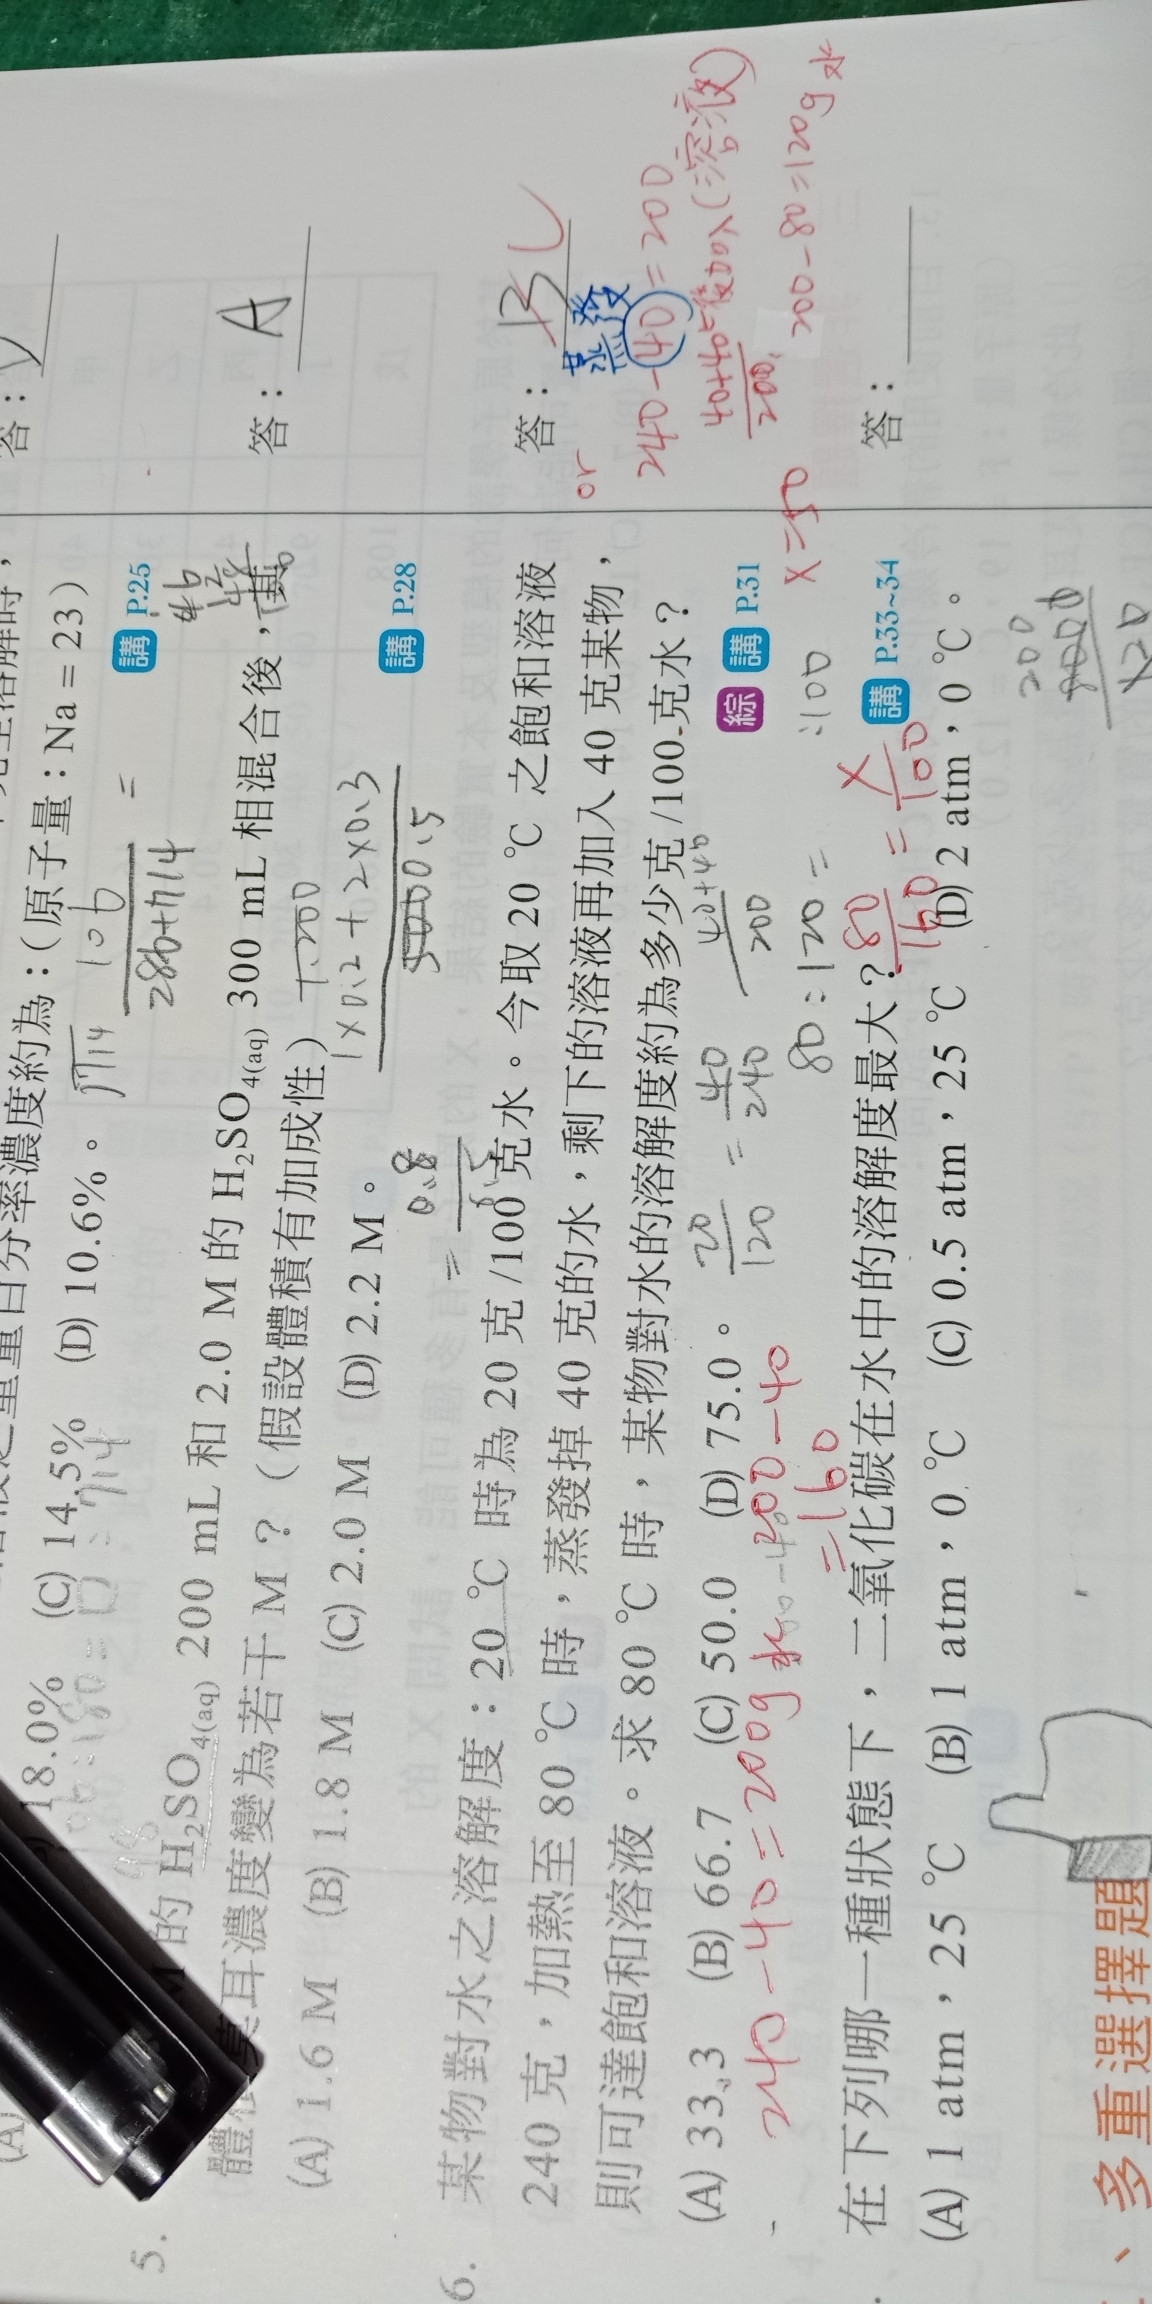 (C) 14.5% (D) 10.6%。
（原子量：Na = 23）
講 P.25
5.
的 H₂SO₄(aq) 200 mL 和 2.0 M 的 H₂SO₄(aq) 300 mL 相混合後，其
耳濃度變為若干 M？（假設體積有加成性）
(A) 1.6 M (B) 1.8 M (C) 2.0 M (D) 2.2 M。
講 P.28
答： A
1×0.2+2×0.3
0.8
6. 某物對水之溶解度：20 ℃ 時為 20 克/100 克水。今取 20 ℃ 之飽和溶液
240 克，加熱至 80 ℃ 時，蒸發掉 40 克的水，剩下的溶液再加入 40 克某物，
則可達飽和溶液。求 80 ℃ 時，某物對水的溶解度約為多少克/100 克水？
(A) 33.3 (B) 66.7 (C) 50.0 (D) 75.0。
綜 講 P.31
答： B
蒸發
or
240-40=200
(溶液)
200-80=120g 水
240-40=200g
200-40
=160
20/120 = 40/240
40+40/200
80:120 =
:100
80/160 = X/100
X=50
在下列哪一種狀態下，二氧化碳在水中的溶解度最大？
講 P.33~34
(A) 1 atm，25 ℃ (B) 1 atm，0 ℃ (C) 0.5 atm，25 ℃ (D) 2 atm，0 ℃。
答：
、多重選擇題